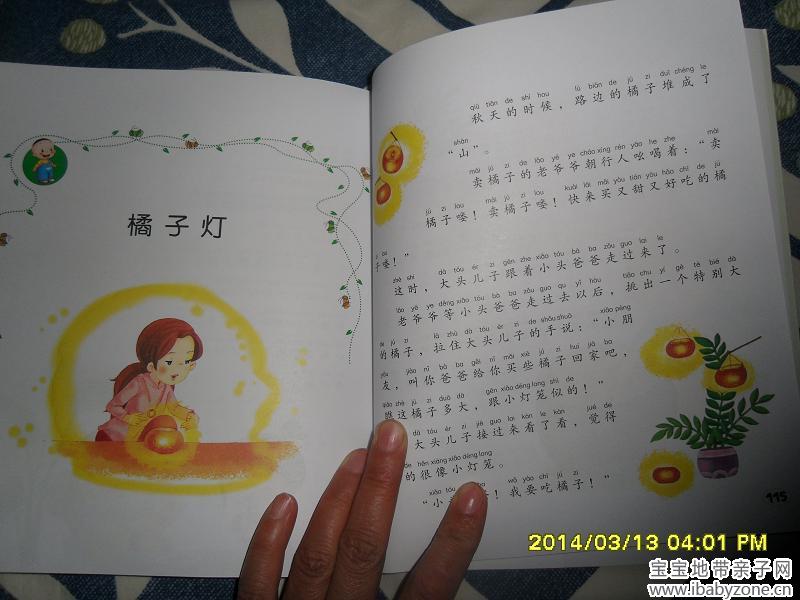 橘子灯
qiū tiān de shí hou lù biān de jú zi duī chéng le
秋天的时候，路边的橘子堆成了
shān
“山”。
mài jú zi de lǎo yé ye cháo xíng rén yāo he zhe mài
卖橘子的老爷爷朝行人吆喝着：“卖
jú zi lou mài jú zi lou kuài lái mǎi yòu tián yòu hǎo chī de jú
橘子喽！卖橘子喽！快来买又甜又好吃的橘
zi lou
子喽！”
zhè shí dà tóu ér zi gēn zhe xiǎo tóu bà ba zǒu guo lai le
这时，大头儿子跟着小头爸爸走过来了。
lǎo yé ye děng xiǎo tóu bà ba zǒu guo qu yǐ hòu tiāo chu yí gè tè bié dà
老爷爷等小头爸爸走过去以后，挑出一个特别大
de jú zi lā zhù dà tóu ér zi de shǒu shuō xiǎo péng
的橘子，拉住大头儿子的手说：“小朋
you jiào nǐ bà ba gěi nǐ mǎi xiē jú zi huí jiā ba
友，叫你爸爸给你买些橘子回家吧，
zhè jú zi duō dà gēn xiǎo dēng long shì de
瞧这橘子多大，跟小灯笼似的！”
dà tóu ér zi jiē guo lai kàn le kàn jué de
大头儿子接过来看了看，觉得
de hěn xiàng xiǎo dēng long
的很像小灯笼。
xiǎo tóu wǒ yào chī jú zi
“小头！我要吃橘子！”
115
2014/03/13 04:01 PM
宝宝地带亲子网
www.ibabyzone.cn